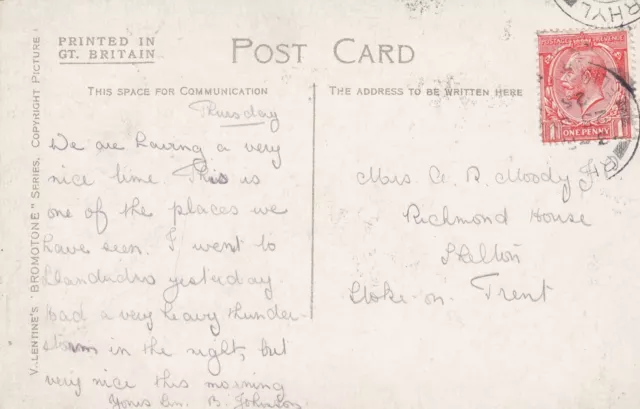 PRINTED IN
GT. BRITAIN
POST CARD
THIS SPACE FOR COMMUNICATION
THE ADDRESS TO BE WRITTEN HERE
VALENTINE'S "BROMOTONE" SERIES, COPYRIGHT PICTURE
Thursday
We are having a very
nice time. This is
one of the places we
have seen. I went to
Llandudno yesterday
had a very heavy thunder-
storm in the night, but
very nice this morning
B. Johnson
Mrs. A. B. Moody
Richmond House
Stoke-on-Trent
RHYL
POSTAGE REVENUE
1 ONE PENNY 1